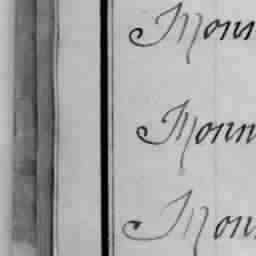 Monn
Monn
Mon